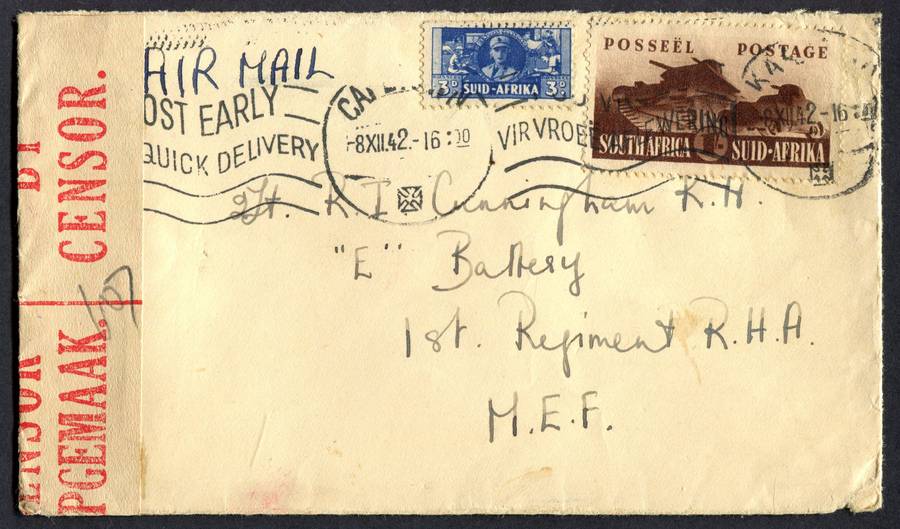 AIR MAIL
OST EARLY
QUICK DELIVERY
-8XII.42.-16:00
VIR VROEË
3D SUID-AFRIKA 3D
POSSEËL POSTAGE
SOUTH AFRICA SUID-AFRIKA
8XII.42.-16
Lt. R. I. Cunningham R.H.
"E" Battery
1st. Regiment R.H.A
M.E.F.
BY
CENSOR.
ENSOR
PGEMAAK.